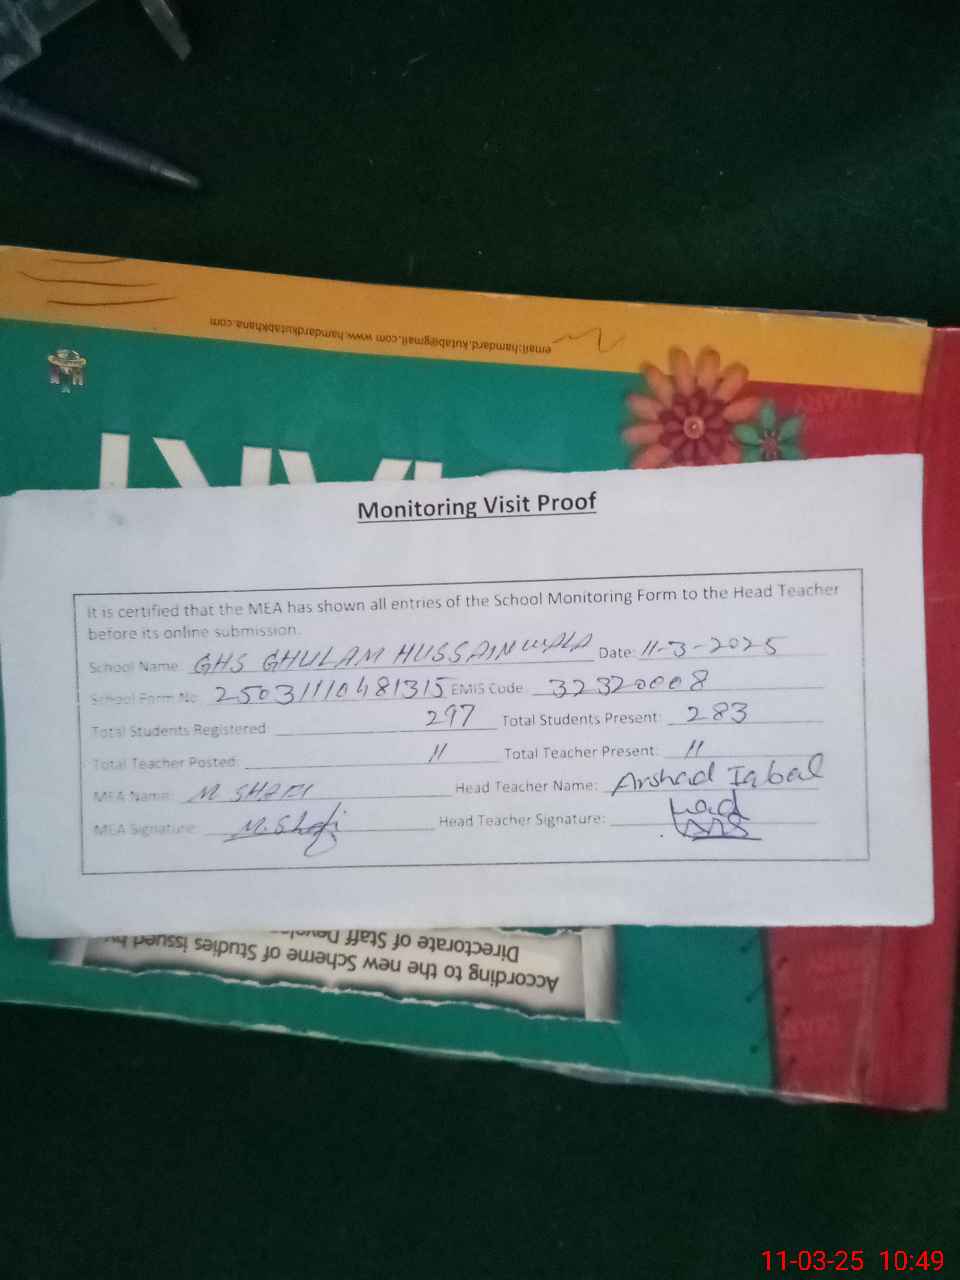 email:hamdard.kutab@gmail.com www.hamdardkutabkhana.com
DIARY
Monitoring Visit Proof
It is certified that the MEA has shown all entries of the School Monitoring Form to the Head Teacher
before its online submission.
School Name: GHS GHULAM HUSSAINWALA Date: 11-3-2025
School Form No: 25031110481315 EMIS Code: 32320008
Total Students Registered: 297 Total Students Present: 283
Total Teacher Posted: 11 Total Teacher Present: 11
MEA Name: M SHAFI Head Teacher Name: Arshad Iqbal
MEA Signature: M.Shafi Head Teacher Signature:
According to the new Scheme of Studies issued by
Directorate of Staff
11-03-25 10:49